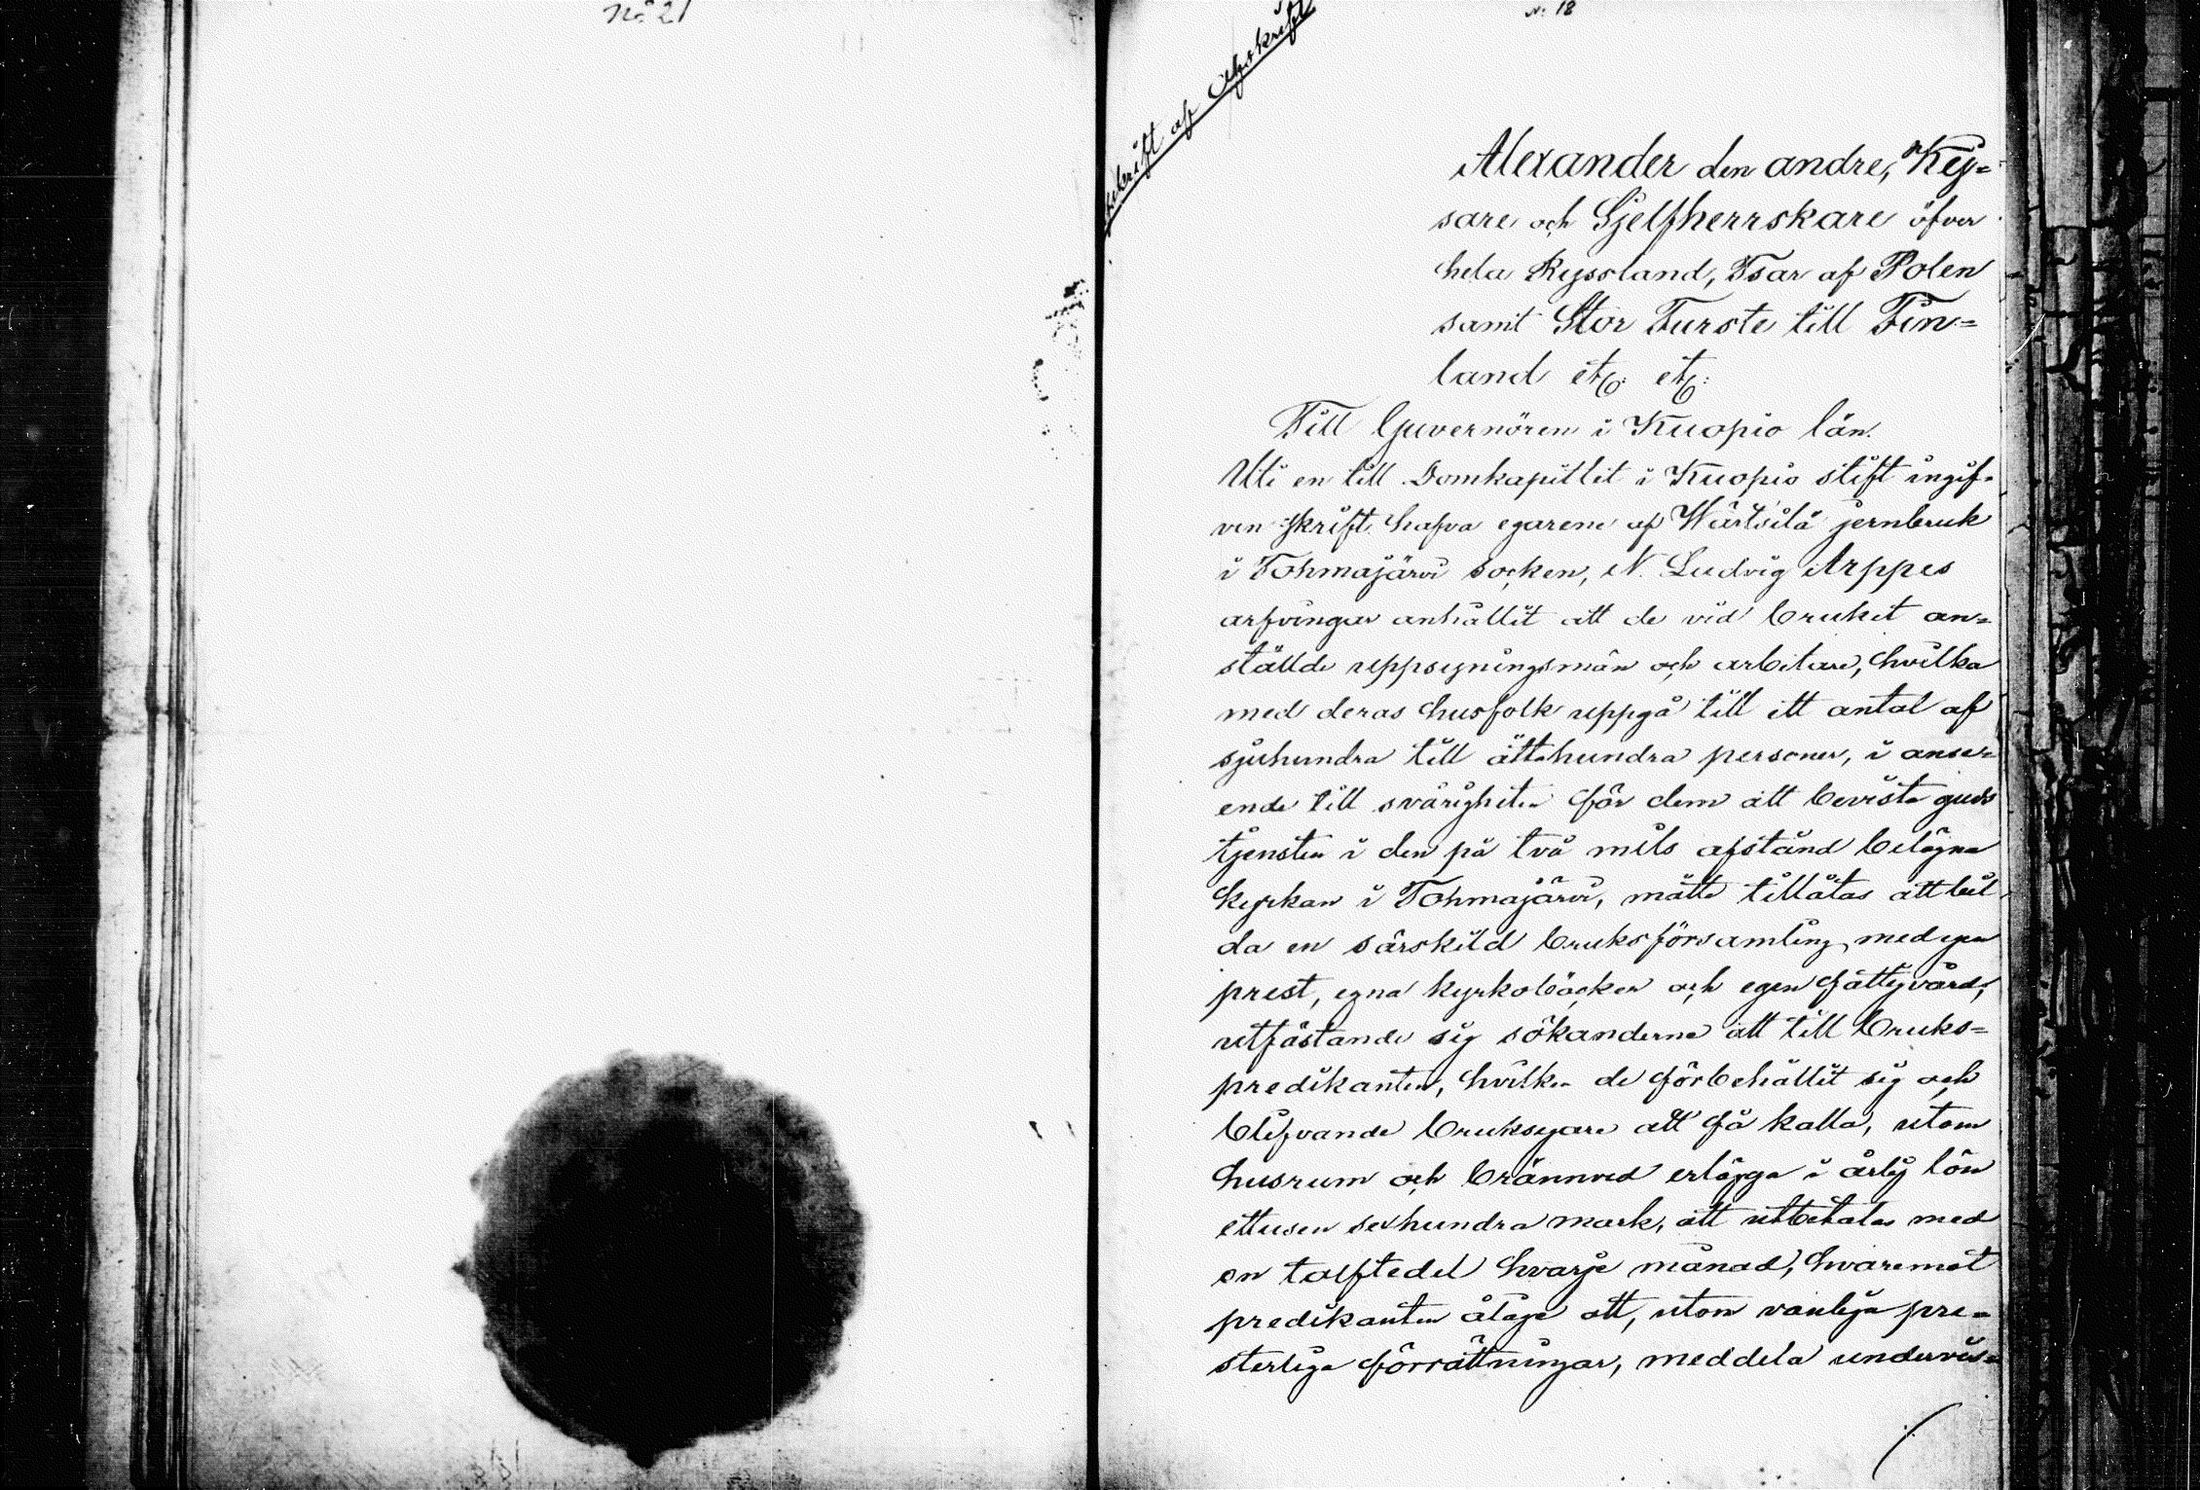 No 21
N: 18
Afskrift af Afskrift
Alexander den andre, Kej=
sare och Sjelfherrskare öfver
hela Ryssland, Tsar af Polen
samt Stor Furste till Fin=
land etc: etc:
Till Guvernören i Kuopio län.
Uti en till Domkapitlet i Kuopio stift ingif-
ven skrift hafva egarene af Wärtsilä jernbruk
i Tohmajärvi socken, N. Ludvig Arppes
arfvingar anhållit att de vid bruket an=
stälde uppsyningsmän och arbetare, hvilka
med deras husfolk uppgå till ett antal af
sjuhundra till åttahundra personer, i anse=
ende till svårigheten för dem att bevista guds
tjensten i den på två mils afstånd belägna
kyrkan i Tohmajärvi, måtte tillåtas att bil-
da en särskild bruksförsamling med egen
prest, egna kyrkoböcker och egen fattigvård,
utfästande sig sökanderne att till bruks=
predikanten, hvilken de förbehållit sig och
blifvande bruksegare att få kalla, utom
husrum och brännved erlägga i årlig lön
ettusen sexhundra mark, att utbetalas med
en tolftedel hvarje månad, hvaremot
predikanten ålåge att, utom vanliga pre=
sterliga förrättningar, meddela undervis=